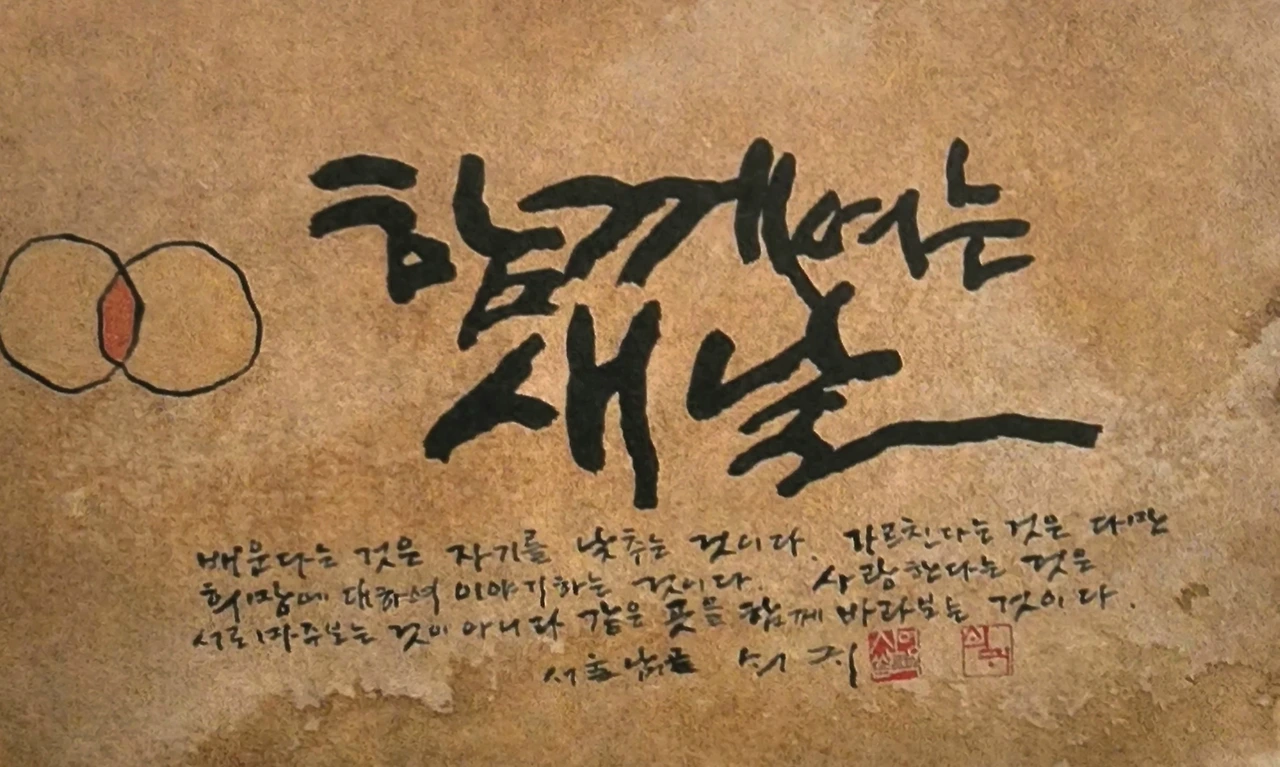 함께 여는
새날
배운다는 것은 자기를 낮추는 것이다. 가르친다는 것은 다만
희망에 대하여 이야기하는 것이다. 사랑한다는 것은
서로 마주보는 것이 아니라 같은 곳을 함께 바라보는 것이다.